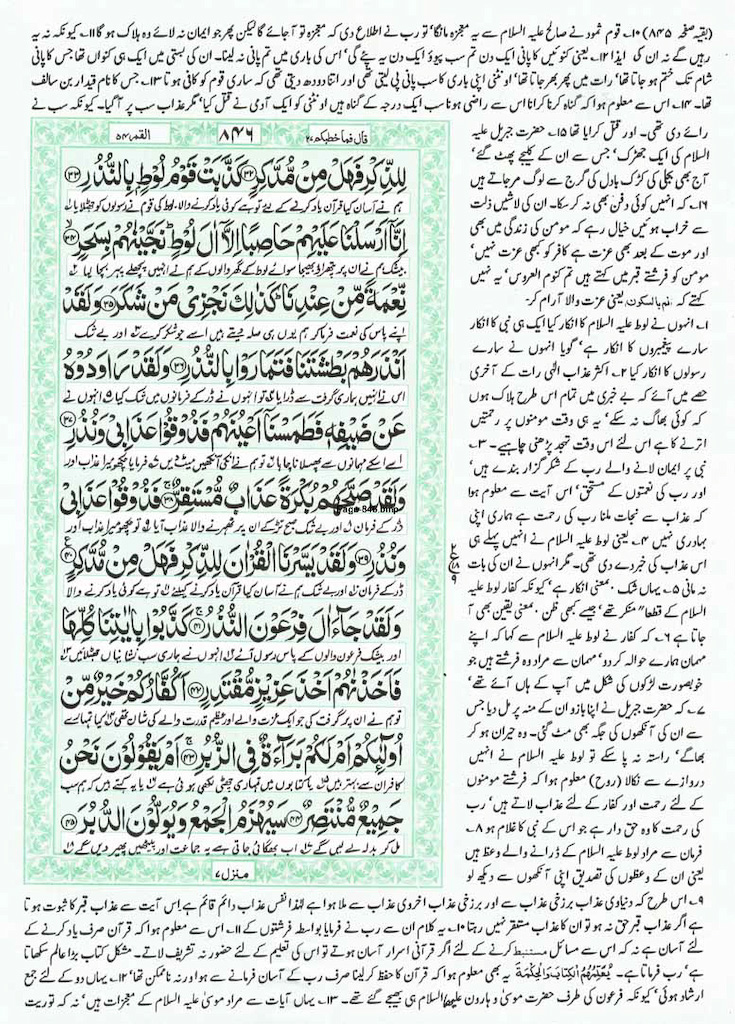 (بقیہ صفحہ ۸۴۵) ۱۰۔ قوم ثمود نے صالح علیہ السلام سے یہ معجزہ مانگا، تو رب نے اطلاع دی کہ معجزہ تو آ جائے گا لیکن پھر جو ایمان نہ لائے وہ ہلاک ہو گا ۱۱۔ کیونکہ نہ یہ
رہیں گے نہ ان کی ایذا ۱۲۔ یعنی کنوئیں کا پانی ایک دن تم سب پیوؤ ایک دن یہ پئے گی، اس کی باری میں تم پانی نہ لینا۔ ان کی بستی میں ایک ہی کنواں تھا جس کا پانی
شام تک ختم ہو جاتا تھا، رات میں پھر بھر جاتا تھا، اونٹنی اپنی باری کا سب پانی پی لیتی تھی اور اتنا دودھ دیتی تھی کہ ساری قوم کو کافی ہوتا ۱۳۔ جس کا نام قیدار بن سالف
تھا۔ ۱۴۔ اس سے معلوم ہوا کہ گناہ کرنا کرانا اس سے راضی ہونا سب ایک درجہ کے گناہ ہیں اونٹنی کو ایک آدمی نے قتل کیا، مگر عذاب سب پر آ گیا۔ کیونکہ سب نے
رائے دی تھی۔ اور قتل کرایا تھا ۱۵۔ حضرت جبریل علیہ
السلام کی ایک جھڑک، جس سے ان کے کلیجے پھٹ گئے،
آج بھی بجلی کی کڑک بادل کی گرج سے لوگ مر جاتے ہیں
۱۶۔ کہ انہیں کوئی دفن بھی نہ کر سکا۔ ان کی لاشیں ذلت
سے خراب ہوئیں خیال رہے کہ مومن کی زندگی میں بھی
اور موت کے بعد بھی عزت ہے کافر کو کبھی عزت نہیں،
مومن کو فرشتے قبر میں کہتے ہیں نم کنوم العروس، یہ نہیں
کہتے کہ نم بالسکون یعنی عزت والا آرام کر۔
۱۔ انہوں نے لوط علیہ السلام کا انکار کیا ایک ہی نبی کا انکار
سارے پیغمبروں کا انکار ہے، گویا انہوں نے سارے
رسولوں کا انکار کیا ۲۔ اکثر عذاب الٰہی رات کے آخری
حصے میں آئے کہ بے خبری میں تمام اس طرح ہلاک ہوں
کہ کوئی بھاگ نہ سکے، یہ ہی وقت مومنوں پر رحمتیں
اترنے کا ہے اس لئے اس وقت تہجد پڑھنی چاہیے۔ ۳۔
نبی پر ایمان لانے والے رب کے شکر گزار بندے ہیں،
اور رب کی نعمتوں کے مستحق، اس آیت سے معلوم ہوا
کہ عذاب سے نجات ملنا رب کی رحمت ہے ہماری اپنی
بہادری نہیں ۴۔ یعنی لوط علیہ السلام نے انہیں پہلے ہی
اس عذاب کی خبر دے دی تھی۔ مگر انہوں نے ان کی بات
نہ مانی ۵۔ یہاں شک، بمعنی انکار ہے، کیونکہ کفار لوط علیہ
السلام کے قطعا" منکر تھے، جیسے کبھی ظن، بمعنی یقین بھی آ
جاتا ہے ۶۔ کہ کفار نے لوط علیہ السلام سے کہا کہ اپنے
مہمان ہمارے حوالہ کر دو، مہمان سے مراد وہ فرشتے ہیں جو
خوبصورت لڑکوں کی شکل میں آپ کے ہاں آئے تھے،
۷۔ کہ حضرت جبریل نے اپنا بازو ان کے منہ پر مل دیا جس
سے ان کی آنکھوں کی جگہ بھی مٹ گئی۔ وہ حیران ہو کر
بھاگے، راستہ نہ پا سکے تو لوط علیہ السلام نے انہیں
دروازے سے نکالا (روح) معلوم ہوا کہ فرشتے مومنوں
کے لئے رحمت اور کفار کے لئے عذاب لاتے ہیں، رب
کی رحمت کا وہ حق دار ہے جو اس کے نبی کا غلام ہو ۸۔
فرمان سے مراد لوط علیہ السلام کے ڈرانے والے وعظ ہیں
یعنی ان کے وعظوں کی تصدیق اپنی آنکھوں سے دیکھ لو
قال فما خطبکم ۲۷
۸۴۶
القمر ۵۴
لِلذِّكْرِ فَهَلْ مِنْ مُّدَّكِرٍ ﴿۳۲﴾ كَذَّبَتْ قَوْمُ لُوْطٍۭ بِالنُّذُرِ ﴿۳۳﴾
ہم نے آسان کیا قرآن یاد کرنے کے لئے تو ہے کوئی یاد کرنے والا۔ لوط کی قوم نے رسولوں کو جھٹلایا
اِنَّاۤ اَرْسَلْنَا عَلَیْهِمْ حَاصِبًا اِلَّاۤ اٰلَ لُوْطٍ نَجَّیْنٰهُمْ بِسَحَرٍ ﴿۳۴﴾
بیشک ہم نے ان پر پتھراؤ بھیجا سوائے لوط کے گھر والوں کے ہم نے انہیں پچھلے پہر بچا لیا
نِّعْمَةً مِّنْ عِنْدِنَا كَذٰلِكَ نَجْزِیْ مَنْ شَكَرَ ﴿۳۵﴾ وَلَقَدْ
اپنے پاس کی نعمت فرما کر ہم یوں ہی صلہ دیتے ہیں اسے جو شکر کرے اور بے شک
اَنْذَرَهُمْ بَطْشَتَنَا فَتَمَارَوْا بِالنُّذُرِ ﴿۳۶﴾ وَلَقَدْ رَاوَدُوْهُ
اس نے انہیں ہماری گرفت سے ڈرایا تو انہوں نے ڈر کے فرمانوں میں شک کیا انہوں نے
عَنْ ضَیْفِهٖ فَطَمَسْنَاۤ اَعْیُنَهُمْ فَذُوْقُوْا عَذَابِیْ وَنُذُرِ ﴿۳۷﴾
اسے اسکے مہمانوں سے پھسلانا چاہا تو ہم نے انکی آنکھیں میٹ دیں فرمایا چکھو میرا عذاب اور
وَلَقَدْ صَبَّحَهُمْ بُكْرَةً عَذَابٌ مُّسْتَقِرٌّ ﴿۳۸﴾ فَذُوْقُوْا عَذَابِیْ
Page 846.bmp
ڈر کے فرمان اور بے شک صبح تڑکے ان پر ٹھہرنے والا عذاب آیا تو چکھو میرا عذاب اور
وَنُذُرِ ﴿۳۹﴾ وَلَقَدْ یَسَّرْنَا الْقُرْاٰنَ لِلذِّكْرِ فَهَلْ مِنْ مُّدَّكِرٍ ﴿۴۰﴾
ڈر کے فرمان اور بے شک ہم نے آسان کیا قرآن یاد کرنے کیلئے تو ہے کوئی یاد کرنے والا
وَلَقَدْ جَآءَ اٰلَ فِرْعَوْنَ النُّذُرُ ﴿۴۱﴾ كَذَّبُوْا بِاٰیٰتِنَا كُلِّهَا
اور بیشک فرعون والوں کے پاس رسول آئے انہوں نے ہماری سب نشانیاں جھٹلائیں
فَاَخَذْنٰهُمْ اَخْذَ عَزِیْزٍ مُّقْتَدِرٍ ﴿۴۲﴾ اَكُفَّارُكُمْ خَیْرٌ مِّنْ
تو ہم نے ان پر گرفت کی جو ایک عزت والے اور عظیم قدرت والے کی شان تھی کیا تمہارے
اُولٰٓئِكُمْ اَمْ لَكُمْ بَرَآءَةٌ فِی الزُّبُرِ ﴿۴۳﴾ اَمْ یَقُوْلُوْنَ نَحْنُ
کافر ان سے بہتر ہیں یا کتابوں میں تمہاری چھٹی لکھی ہوئی ہے یا یہ کہتے ہیں کہ ہم سب
جَمِیْعٌ مُّنْتَصِرٌ ﴿۴۴﴾ سَیُهْزَمُ الْجَمْعُ وَیُوَلُّوْنَ الدُّبُرَ ﴿۴۵﴾
مل کر بدلہ لے لیں گے اب بھگائی جاتی ہے یہ جماعت اور پیٹھیں پھیر دیں گے
منزل ۷
۹۔ اس طرح کہ دنیاوی عذاب برزخی عذاب سے اور برزخی عذاب اخروی عذاب سے ملا ہوا ہے لہٰذا نفس عذاب دائم قائم ہے اس آیت سے عذاب قبر کا ثبوت ہوتا
ہے اگر عذاب قبر حق نہ ہو تو ان کا عذاب مستقر نہیں رہتا ۱۰۔ یہ کلام ان سے رب نے فرمایا بواسطہ فرشتوں کے ۱۱۔ اس سے معلوم ہوا کہ قرآن صرف یاد کرنے کے
لئے آسان ہے نہ کہ اس سے مسائل مستنبط کرنے کے لئے اگر قرآنی اسرار آسان ہوتے تو اس کی تعلیم کے لئے حضور نہ تشریف لاتے۔ مشکل کتاب بڑا عالم سکھاتا
ہے، رب فرماتا ہے۔ یُعَلِّمُهُمُ الْكِتَابَ وَالْحِكْمَةَ یہ بھی معلوم ہوا کہ قرآن کا حفظ کر لینا صرف رب کے آسان فرمانے سے ہوا ورنہ نا ممکن تھا، ۱۲۔ یہاں دو کے لئے جمع
ارشاد ہوئی، کیونکہ فرعون کی طرف حضرت موسیٰ و ہارون علیہما السلام ہی بھیجے گئے تھے۔ ۱۳۔ یہاں آیات سے مراد موسیٰ علیہ السلام کے معجزات ہیں، نہ کہ توریت